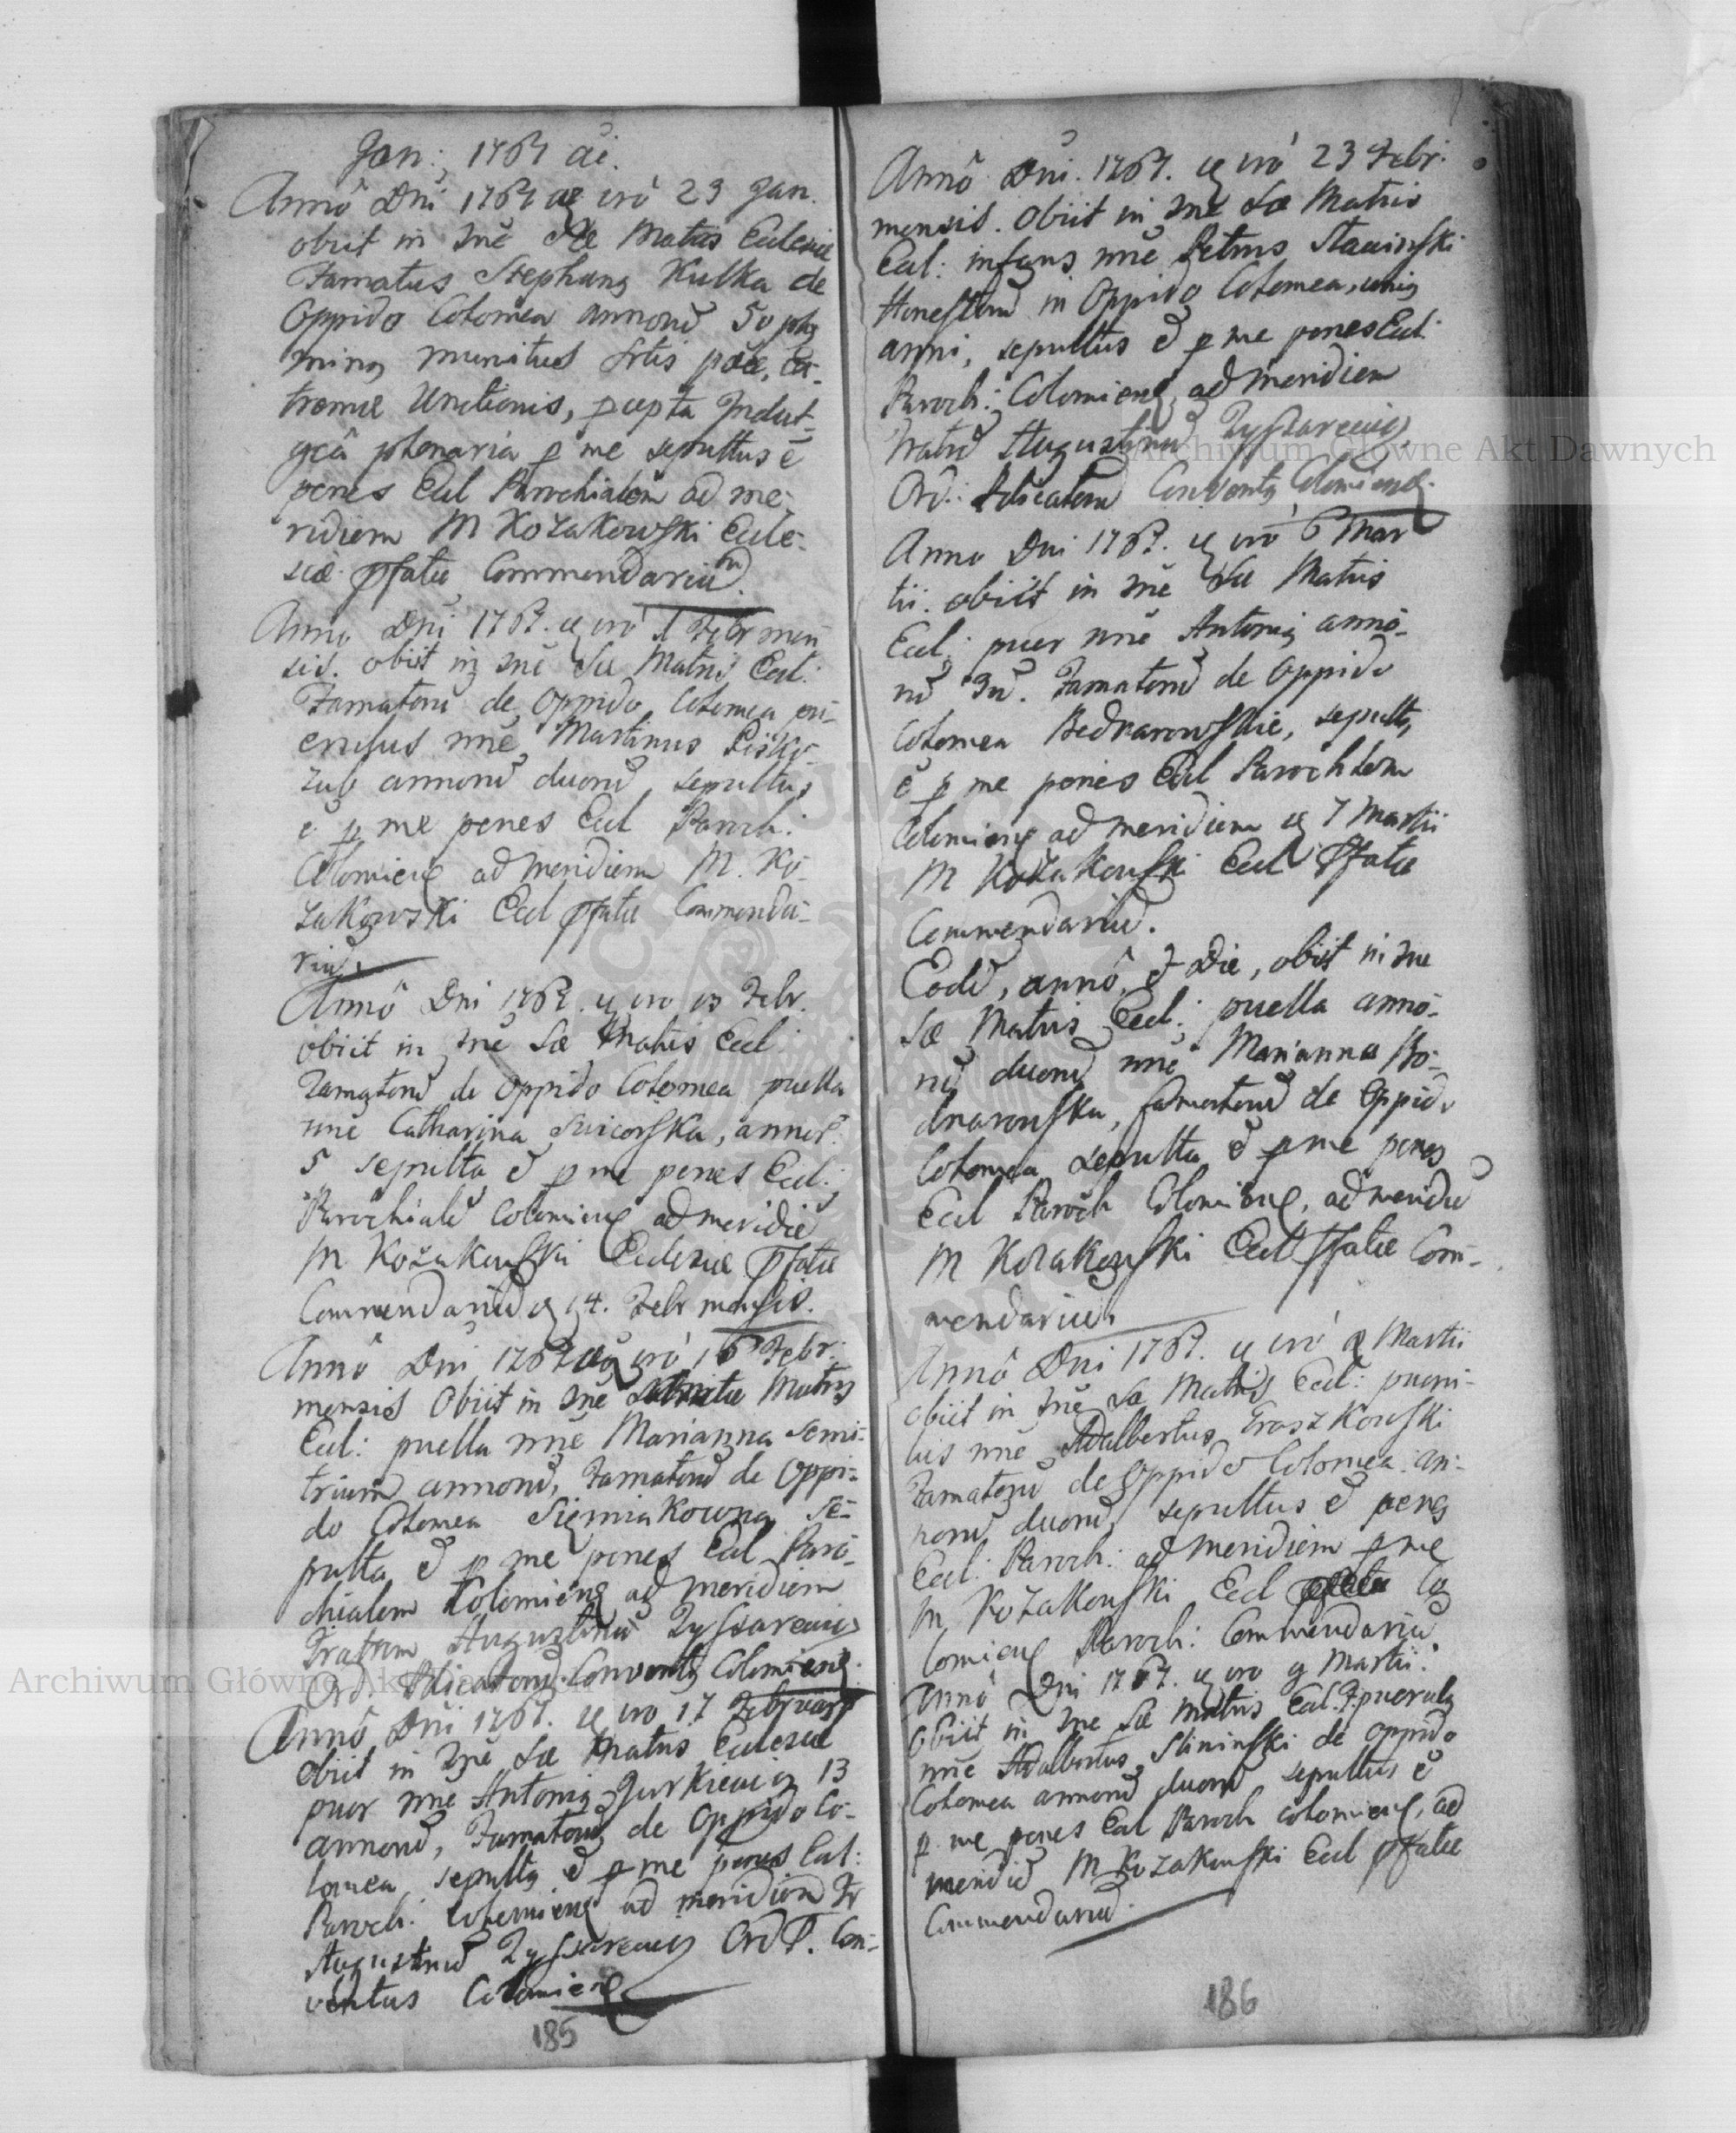 Jan: 1767 ai.
Annô Dni 1767 vrò 23 Jan.
obiit in Snê Sæ Matris Ecclesiæ
Famatus Stephang Kulka de
Oppido Colomea annorũ 50
ming munitus Srtis pœæ, Ex-
tremæ Unctionis, pcepta Indul-
gciâ plenaria p me sepultus ē
penes Eccl Parochialem ad me-
ridiem M Kozakowski Eccle-
siæ pfatæ Commendariũ.
Anno Dni 1767. vrò 1 Febr men
sis. obiit in Snê Sæ Matris Eccl:
Famatorũ de Oppido Colomea
nnê Martinus Pisko-
zub annorũ duorũ sepultus
ē p me penes Eccl Paroch:
Colomien ad meridiem M. Ko-
zakowski Eccl pfatæ Commenda-
riũ.
Annô Dni 1767. vro 13 Febr.
obiit in Snê Sæ Matris Eccl
Famatorũ de Oppido Colomea puella
nnê Catharina, annor:
5 sepulta ē p me penes Eccl:
Parochialẽ Colomien ad meridiẽ
M Kozakowski Ecclesiæ pfatæ
Commendariũ 14. Febr mensis.
Annô Dni 1767 vrò 16 Febr:
mensis Obiit in Snê Matris
Eccl: puella nnê Marianna Semi-
trium annorũ, Famatorũ de Oppi-
do Colomea Siemiakowna se-
pulta ē p me penes Eccl Paro-
chialem Colomien ad meridiem
Fratrem Augustinũ Zyssarewicz
Ord. Pdicatorũ Conventg Colomien.
Annô Dni 1767. vro 17 Februarii
obiit in Snê Sæ Matris Ecclesiæ
puer nnê Antonig Jurkiewicz 13
annorũ, Famatorũ de Oppido Co-
lomea sepultg ē p me penes Eccl:
Paroch: Colomien ad meridiem Fr
Augustinũ Zyssarewicz Ord P. Con-
ventus Colomien
185
Annô Dni. 1767. vrò 23 Febr.
mensis. Obiit in Snê Sæ Matris
Eccl: infans nnê Petrus Stawinski
Honestorũ in Oppido Colomea, unig
anni, sepultus ē p me penes Eccl:
Paroch: Colomien, ad meridiem
Fratrũ Augustinũ Zyssarewicz
Ord: Pdicatorũ Conventg Colomien.
Anno Dni 1767. vrò 6 Mar
tii. obiit in Snê Sæ Matris
Eccl: puer nnê Antonig anno-
rũ Famatorũ de Oppido
Colomea Bednarowskie, sepultg
ē p me penes Eccl Parochlem
Colomien ad meridiem 7 Martii
M Kozakowski Eccl Pfatæ
Commendariũ.
Eodẽ, annô, & Die, obiit in Sne
Sæ Matris Eccl: puella anno-
rũ duorũ nnê Marianna Bo-
dnarowska, famatorũ de Oppido
Colomea sepulta ē p me penes
Eccl Paroch Colomien, ad meridiẽ
M Kozakowski Eccl Pfatæ Com-
mendariũ
Annô Dni 1767. vrò 8 Martii
obiit in Snê Sæ Matris Eccl: pueru-
lus nnê Adalbertus Groszkowski
Famatorũ de Oppido Colomea an-
norũ duorũ, sepultus ē penes
Eccl: Paroch: ad meridiem p me
M Kozakowski Eccl Co
lomien Paroch: Commendariũ.
Annô Dni 1767. vro 9 Martii.
Obiit in Sne Sæ Matris Eccl: puerulg
nnê Adalbertus Slininski de Oppido
Colomea annorũ duorũ sepultus ē
p me penes Eccl Paroch Colomien, ad
meridiẽ M Kozakowski Eccl pfatæ
Commendariũ.
186
Archiwum Główne Akt Dawnych
Archiwum Główne Akt Dawnych